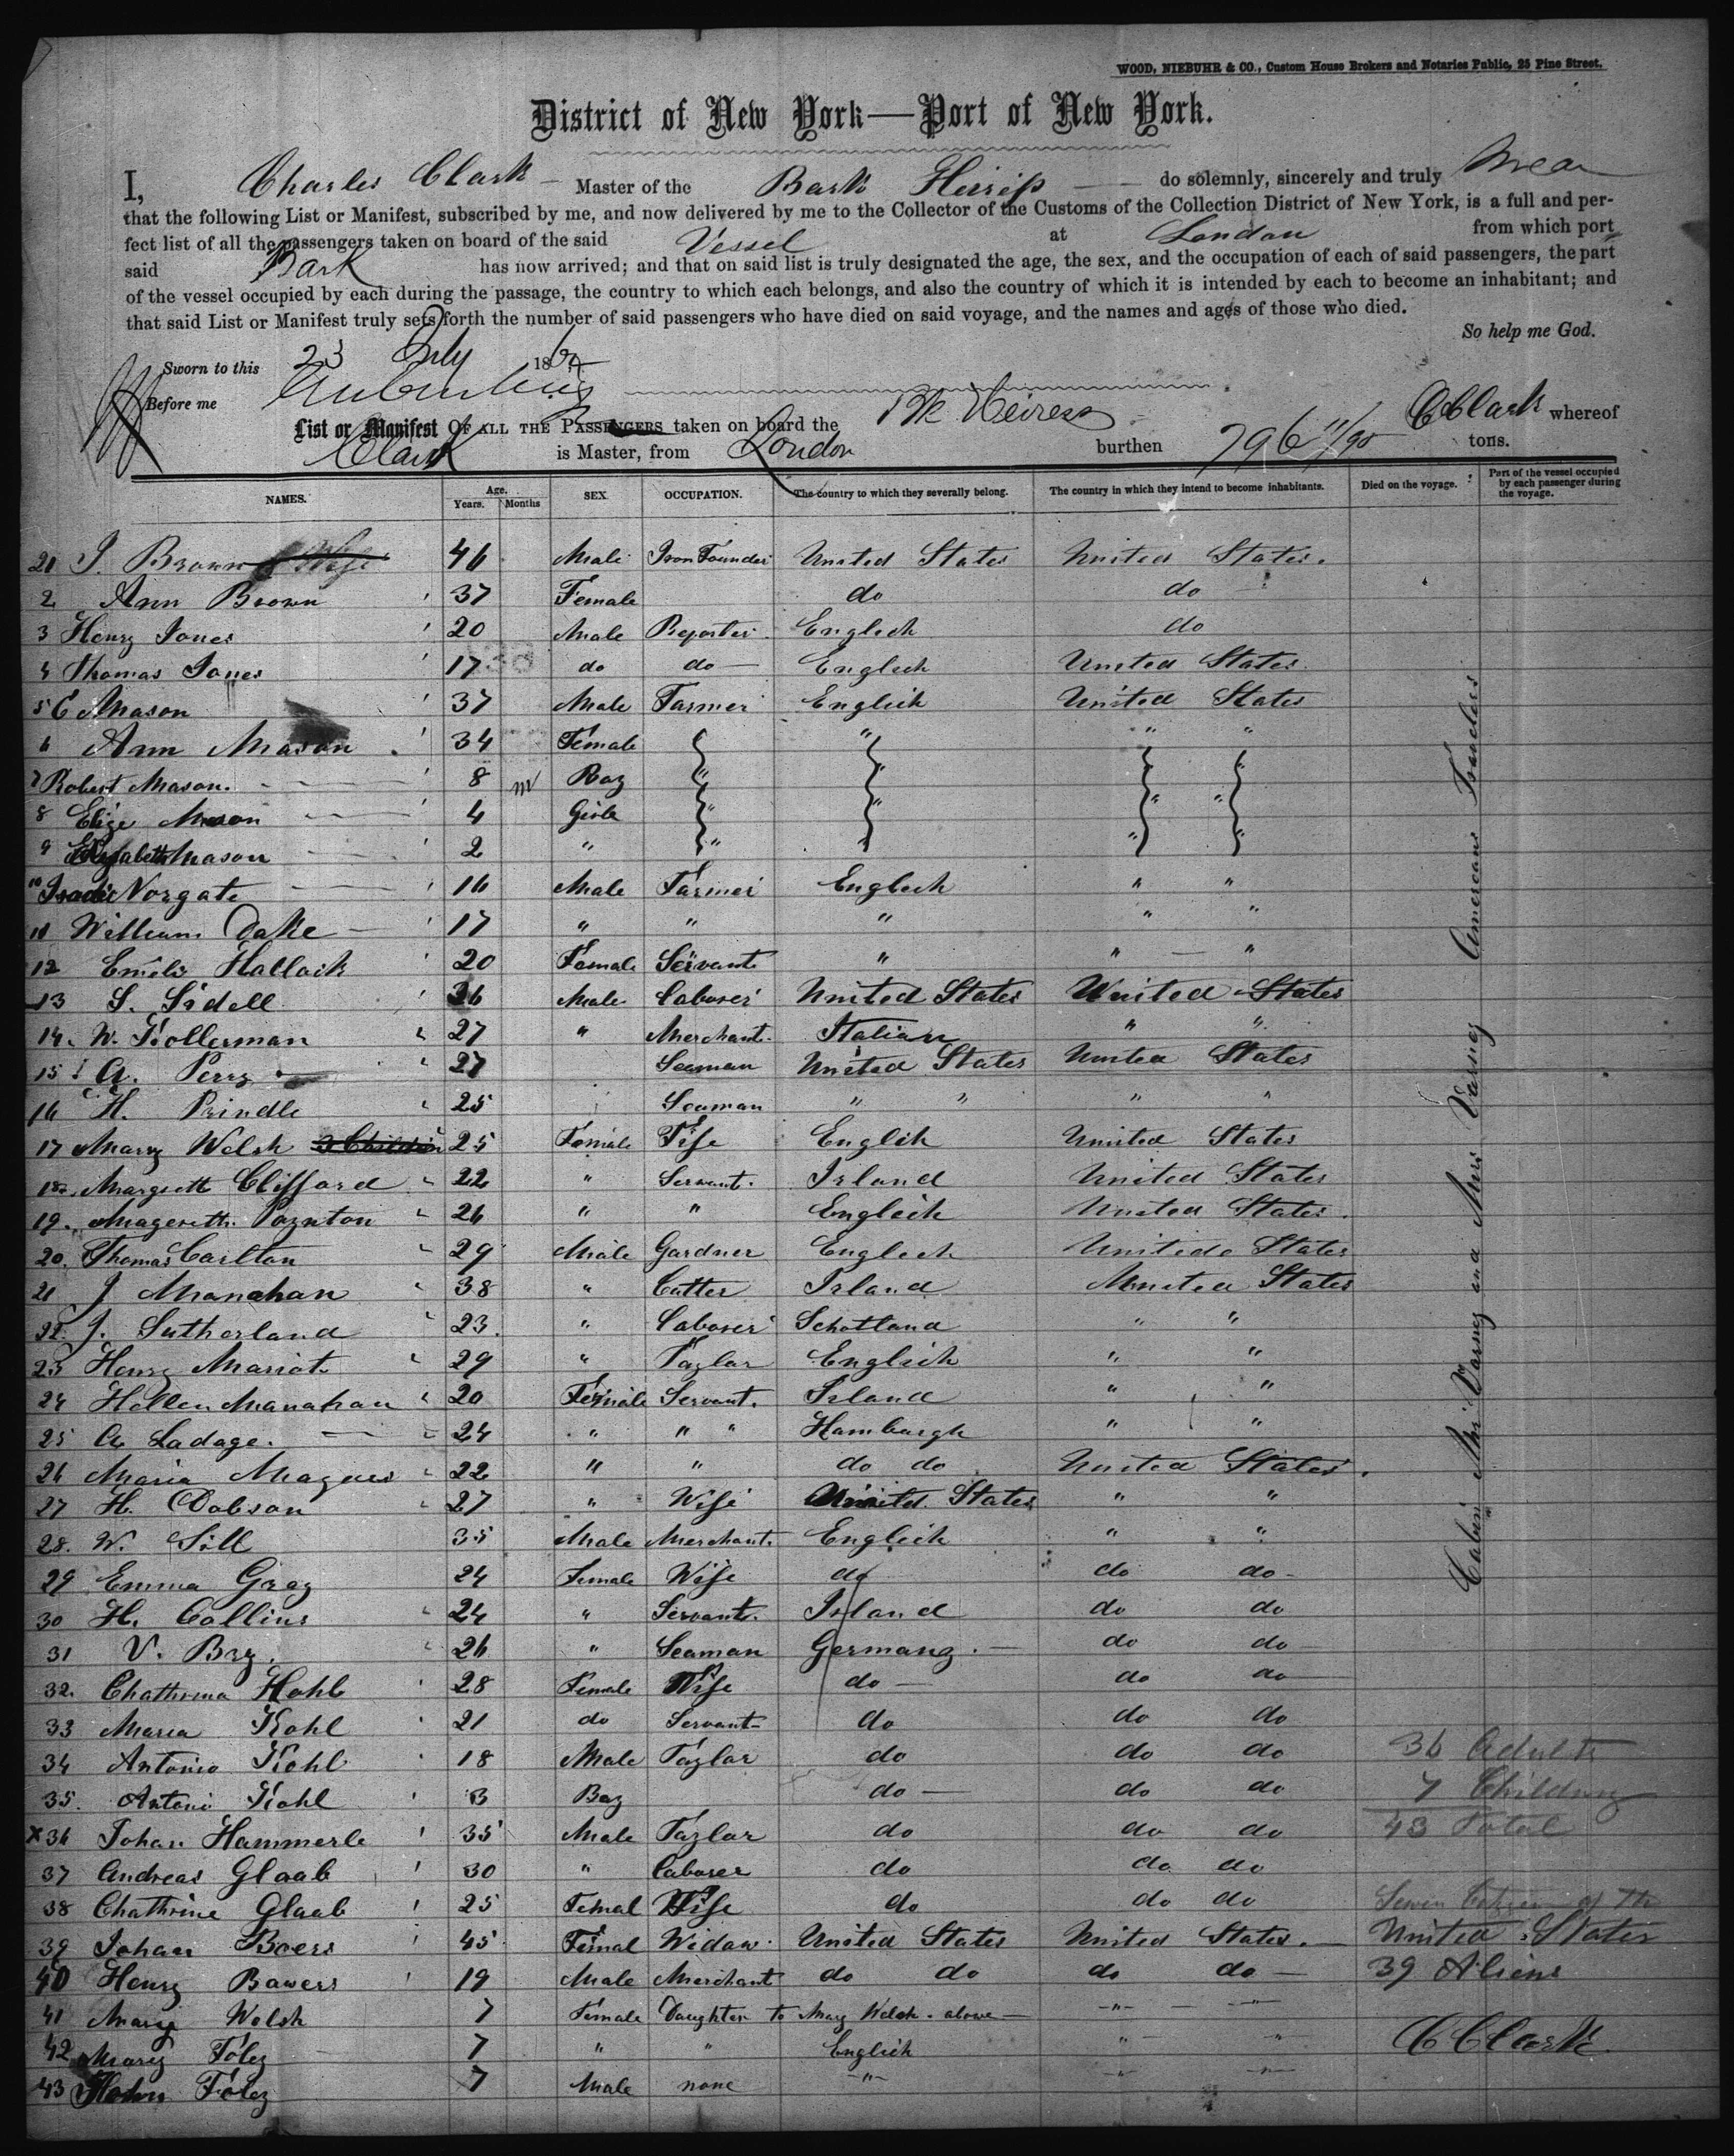 WOOD, NIEBUHR & CO., Custom House Brokers and Notaries Public, 25 Pine Street.
District of New York—Port of New York.
I, Charles Clark – Master of the Bark Heiress do solemnly, sincerely and truly swear
that the following List or Manifest, subscribed by me, and now delivered by me to the Collector of the Customs of the Collection District of New York, is a full and per-
fect list of all the passengers taken on board of the said Vessel at London from which port
said Bark has now arrived; and that on said list is truly designated the age, the sex, and the occupation of each of said passengers, the part
of the vessel occupied by each during the passage, the country to which each belongs, and also the country of which it is intended by each to become an inhabitant; and
that said List or Manifest truly sets forth the number of said passengers who have died on said voyage, and the names and ages of those who died.
So help me God.
Sworn to this 23 July 186
Before me
C Clark
List or Manifest OF ALL THE PASSENGERS taken on board the Bk Heiress whereof
Clark is Master, from London burthen 796 11/95 tons.
NAMES. Age. Years. Months SEX. OCCUPATION. The country to which they severally belong. The country in which they intend to become inhabitants. Died on the voyage. Part of the vessel occupied by each passenger during the voyage.
21 J. Brown & Wife 46 Male Iron Founder United States United States.
2 Ann Brown 37 Female do do
3 Henry Jones 20 Male Reporter Englech do
4 Thomas Jones 17 do do Englech United States
5 E Mason 37 Male Farmer English United States
6 Ann Mason 34 Female " " "
7 Robert Mason. 8 m Boy " "
8 Elize Mason 4 Girls " " " "
9 Elizabeth Mason 2 " " " " "
10 Norgate 16 Male Farmer Englech " "
11 William Dakke 17 " " " " "
12 Emelie Hallack 20 Female Servant " " "
13 S. Sidell 36 Male Laborer United States United States
14. W. Kollerman 27 " Merchant. Italian " "
15 A. Perry 27 Seaman United States United States
16 H. Prindle 25 Seaman " " " "
17 Mary Welsh 2 Children 25 Female Wife Englih United States
18. Margreth Clifford 22 " Servant. Irland United States
19. Magereth. Poynton 26 " " Engleih United States.
20. Thomas Carlton 29 Male Gardner Englech Unitede States
21 J Manahan 38 " Cutter Irland United States
22. J. Sutherland 23. " Laborer Schotland " "
23 Henry Mariot 29 " Taylor English " "
24 Hellen Manahan 20 Female Servant. Irland " "
25 A Ladage. 24 " " " Hamburgh " "
26 Maria Magues 22 " " do do United States.
27 H. Dobson 27 " Wife United States " "
28. W. Sill 35 Male Merchant. Engleih " "
29 Emma Gray 24 Female Wife do do do
30 H. Collins 24 " Servant. Irland do do
31 V. Bay. 26 " Seaman Germany. do do
32. Chatherina Kohl 28 Female Wife do do do
33 Maria Kohl 21 do Servant do do do
34 Antonio Kohl 18 Male Taylor do do do 36 Adults
35. Antoni Kohl 3 Boy do do do 7 Children
x36 Johan Hammerle 35 Male Taylor do do do 43 Total
37 Andreas Glaab 30 " Laborer do do do
38 Chathrine Glaab 25 Femal Wife do do do Seven Citizen of the
39 Johan Boers 45 Femal Widow United States United States. United States
40 Henry Bowers 19 Male Merchant do do do do 39 Aliens
41 Mary Welsh 7 Female Daughter to Mary Welsh. above " "
42 Mary Foley 7 " " Engleih " " C Clark.
43 John Foley 7 Male none " " "
Cabin Mr. Varney and Mrs Varney Americans Travelers